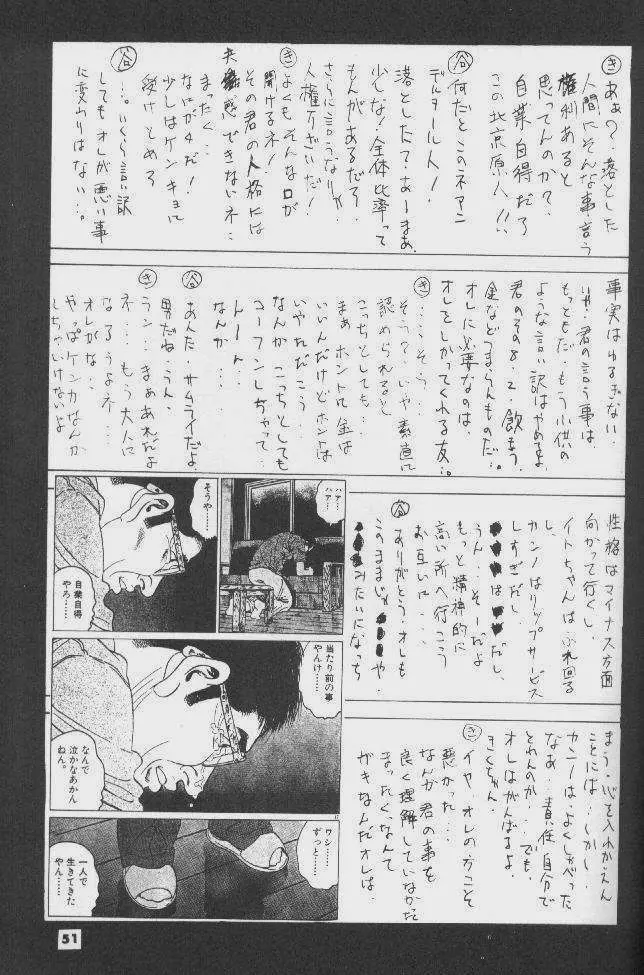 き あぁの？、落とした
人間にそんな事言う
権利あると
思ってんのか？、
自業自得だろ
この北京原人!!
谷 何だとこのネアン
デルタール人！、
落としたてなーまあ、
少しな！全体比率って
もんがあるだろ、
さらに言うなりゃ、
人権だぎいだ！
き よくもそんな口が
聞けるネ！
その君の人格には
共感できないネ‥
まったく‥
なにが4だ！
少しはケンキョに
受けとめろ
谷 …。いくら言い訳
してもオレが悪い事
に変わりはない‥。
事実はゆるぎない．
いや、君の言う事は
もっともだ．もう小供の
ような言い訳はやめるよ．
君のその8．2．飲まう．
金などつまらんものだ。
オレに必要なのは、
オレをしかってくれる友‥。
き ‥‥こそら‥
そう？‥いや素直に
認められると
こっちとしても‥
まぁホントに金は
いいんだけどホントは
いやただこう‥
なんかこっちとしても
コーフンしちゃって‥
トーン‥
なんか‥‥
谷 あんたサムライだよ．
男だね．うん．
き ウン‥まぁあれだよ
ネ‥．もう大人に
なろうよネ‥．
オレがな‥．
やっぱケンカなんか
しちゃいけないよ．
性格はマイナス方面
向かって行くし、
イトちゃんはぶれ回る
し、
カンノはリップサービス
しすぎだし、
は だし、
うん‥そーだよ
もっと精神的に
高い所へ行こう
お互いに‥．
谷 ありがとう．オレも
このままじゃ や
みたいになっち
まう．心を入れかえん
ことには‥しかし．
カンノは‥よくしゃべった
なぁ‥責任自分で
とれんのか‥でも．
オレはがんばるよ．
きくちゃん．
き イヤ、オレの方こそ
悪かった‥
なんか君の事を
良く理解していなかた
まったく、なんて
ガキなんだオレは．
ハァ…
ハァ…
そうや……
自業自得
やろ……
当たり前の事
やんけ……
なんで
泣かなあかん
ねん。
ワシ……
ずっと……
一人で
生きてきた
やん……
51